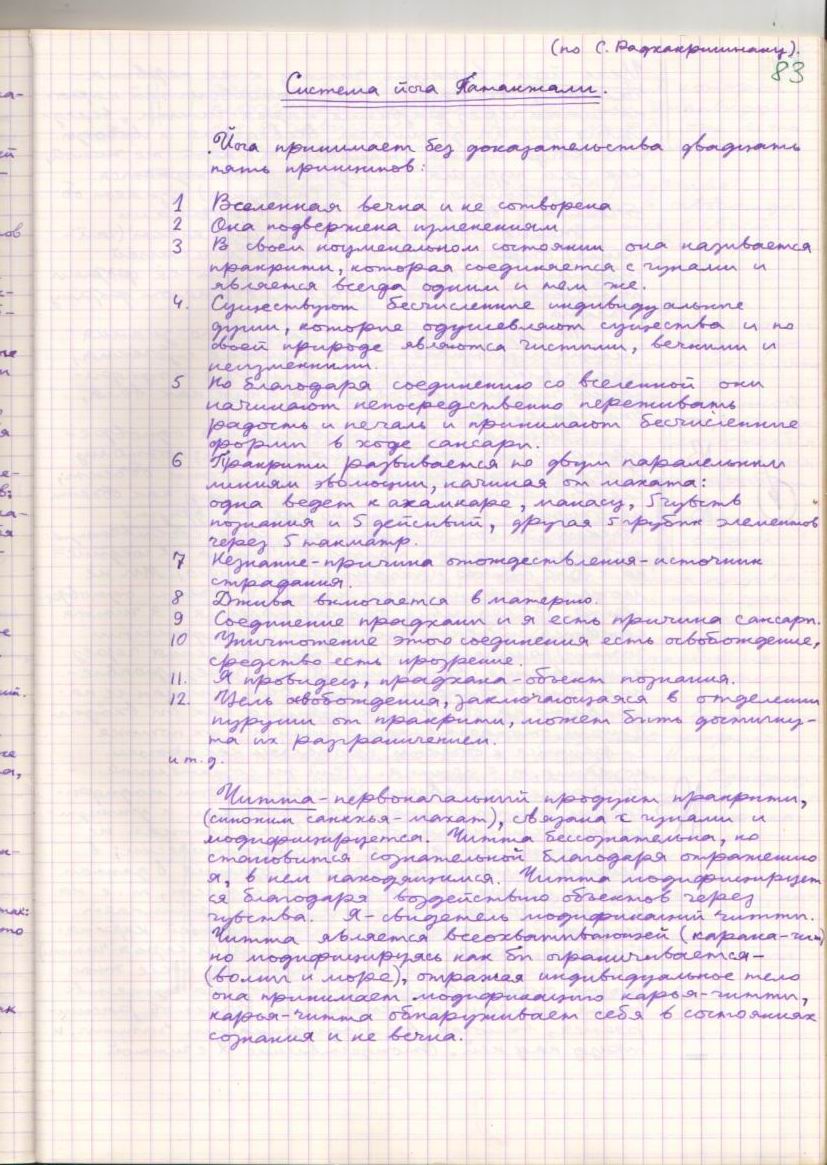 (по С. Радхакришнану).
83
Система йога Патанжали.
Йога принимает без доказательства двадцать
пять принципов:
1 Вселенная вечна и не сотворена
2 Она подвержена изменениям
3 В своем ноуменальном состоянии она называется
пракрити, которая соединяется с гунами и
является всегда одним и тем же.
4. Существуют бесчисленные индивидуальные
души, которые одушевляют существа и по
своей природе являются чистыми, вечными и
неизменными.
5 Но благодаря соединению со вселенной они
начинают непосредственно переживать
радость и печаль и принимают бесчисленные
формы в ходе сансары.
6 Пракрити развивается по двум паралельным
линиям эволюции, начиная от махата:
одна ведет к ахамкаре, манасу, 5 чувств
познания и 5 действий, другая 5 грубых элементов
через 5 танматр.
7 Незнание-причина отождествления-источник
страдания.
8 Джива включается в материю.
9 Соединение прадханы и я есть причина сансары.
10 Уничтожение этого соединения есть освобождение,
средство есть прозрение.
11. Я провидец, прадхана-объект познания.
12. Цель освобождения, заключающаяся в отделении
пуруши от пракрити, может быть достигну-
та их разграничением.
и т.д.
Читта-первоначальный продукт пракрити,
(синоним санкхья-махат), связана с гунами и
модифицируется. Читта бессознательна, но
становится сознательной благодаря отражению
я, в нем находящимся. Читта модифицирует
ся благодаря воздействию объектов через
чувства. Я-свидетель модификаций читты.
Читта является всеохватывающей (карана-чит)
но модифицируясь как бы ограничивается-
(волны и море), отражая индивидуальное тело
она принимает модификацию карья-читты,
карья-читта обнаруживает себя в состояниях
сознания и не вечна.